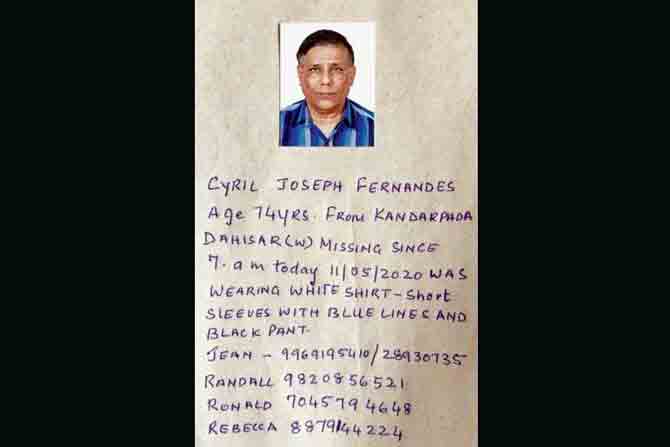 CYRIL JOSEPH FERNANDES
Age 74YRS. FROM KANDARPHDA
DAHISAR (W) MISSING SINCE
7. am today 11/05/2020 WAS
WEARING WHITE SHIRT - Short
SLEEVES WITH BLUE LINES AND
BLACK PANT.
JEAN - 9969195410/28930735
RANDALL 9820856521
RONALD 7045794648
REBECCA 8879144224